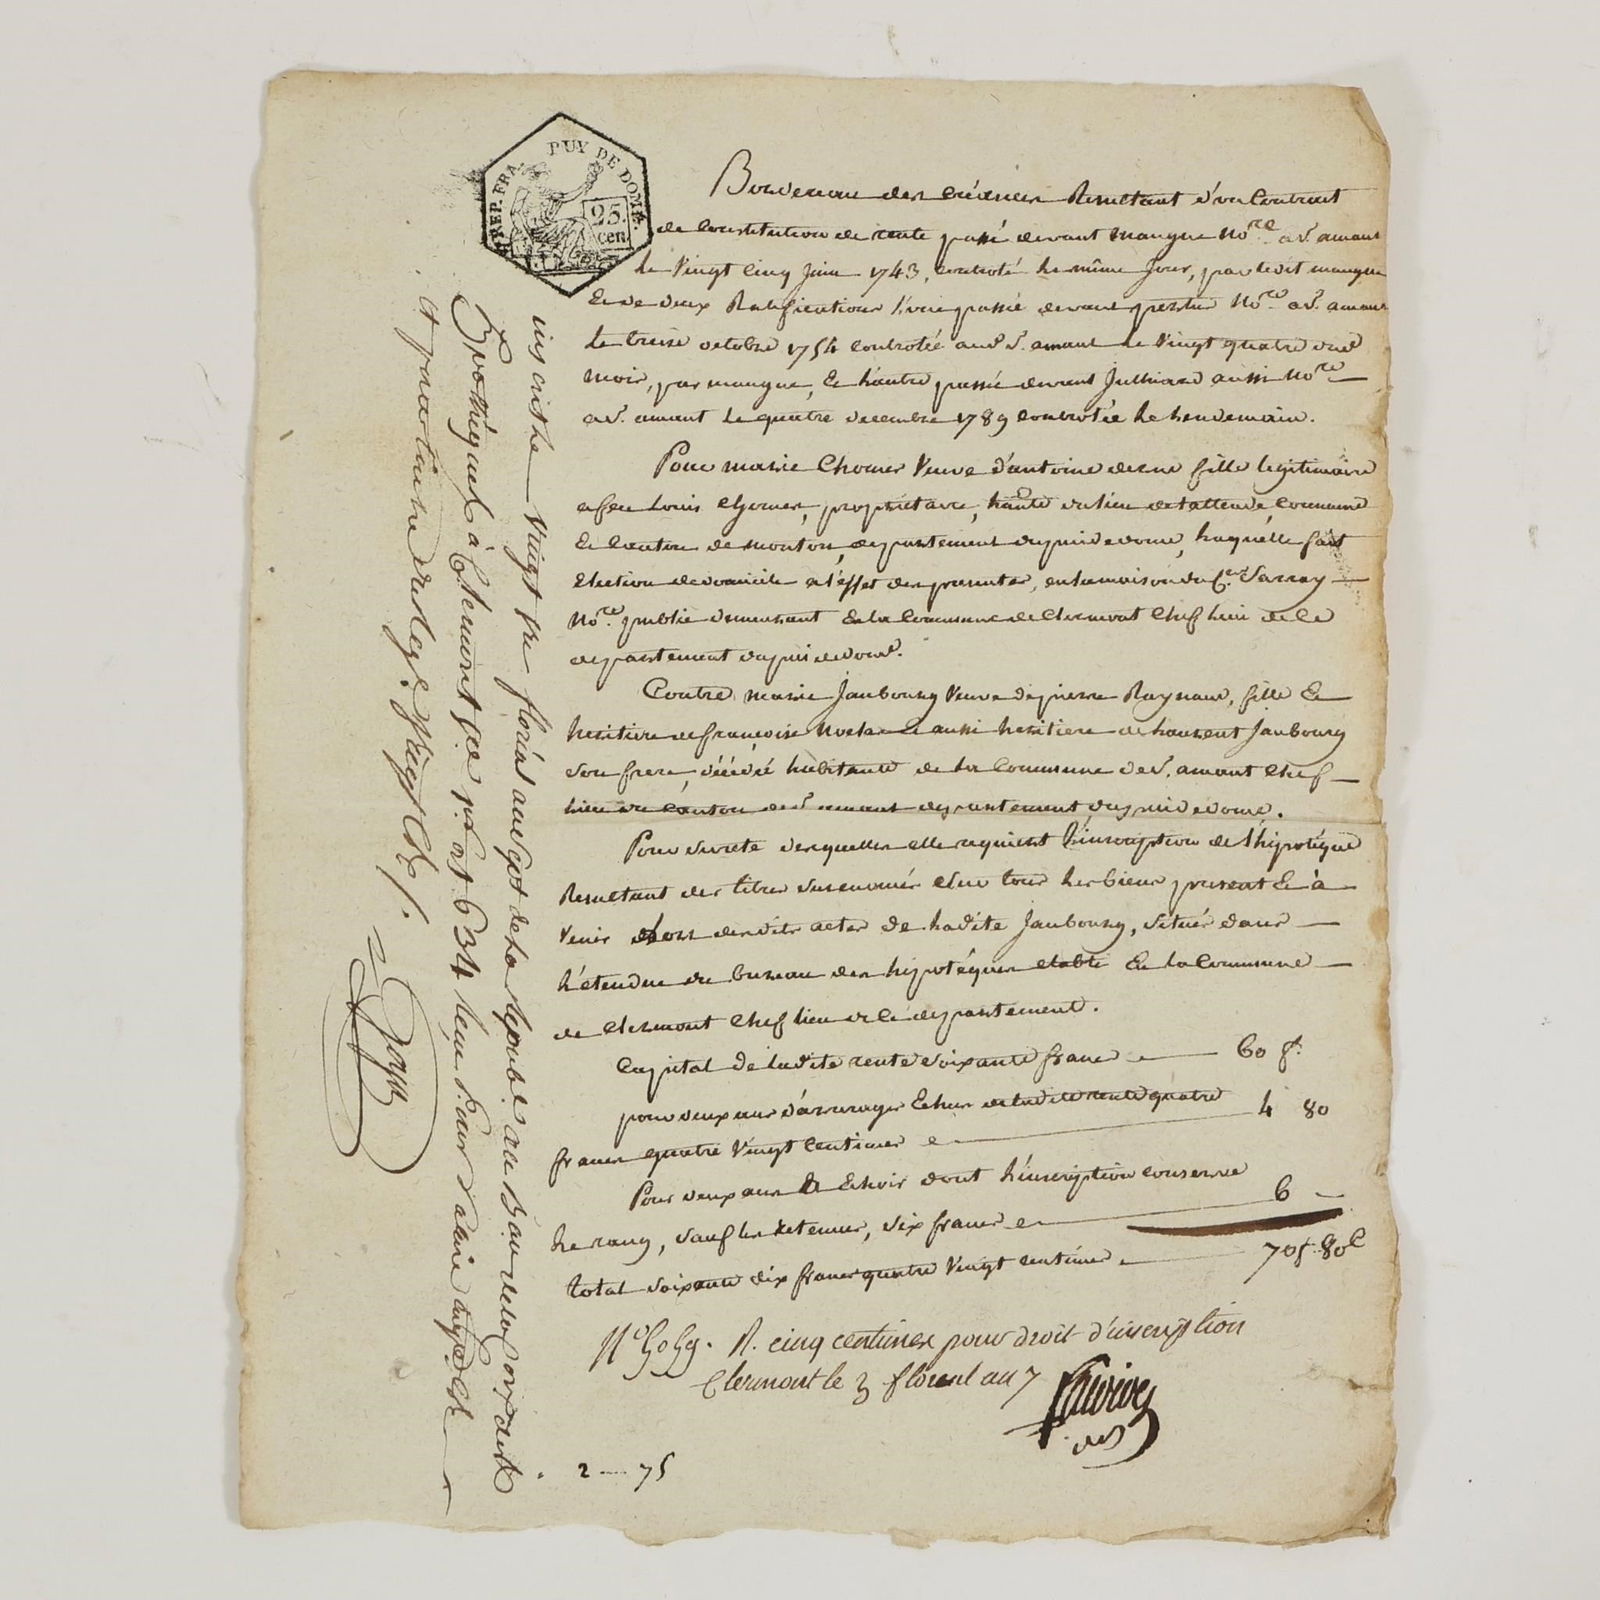 REP. FRA. PUY DE DOME.
25.
cen.
Bordereau des créances Resultant d'un Contrat
de Constitution de rente passé devant mangue No.re a St. amant
le Vingt Cinq Juin 1743, controlé le même Jour, par ledit mangue
Et de deux Ratifications l'une passée devant No.re a St. amant
le treize octobre 1754 controlée aud. St. amant le Vingt quatre dud.
mois, par mangue, Et l'autre passée devant Julliard aussi No.re
a St. amant le quatre decembre 1789 controlée le lendemain.
Pour marie Chomer Veuve d'antoine fille legitimaire
a feu Louis Chomer, propriétaire, habte. du lieu de tallende Commune
Et Canton de monton, departement du puidedome, laquelle fait
Election de domicile a l'effet des presentes, en la maison du C.en
No.re public demeurant En la Commune de Clermont Chef lieu de Ce
departement du puidedome.
Contre marie Jaubourg Veuve de pierre Raynaud, fille Et
heritiere de françoise Et aussi heritiere de Laurent Jaubourg
son frere, décédé habitante de la Commune de St. amant Chef
lieu de Canton de St. amant departement du puidedome.
Pour sureté desquelles elle requiert l'inscription de l'hipotéque
Resultant des titres susenoncés sur tous les biens present Et à
Venir desdits actes de ladite Jaubourg, situés dans
l'étendue du bureau des hipotéques etabli En la Commune
de Clermont Chef lieu de Ce departement.
Capital de ladite rente soixante francs 60 f.
pour deux ans d'arrerages Echus de ladite rente quatre
francs quatre Vingt Centimes 4 80
Pour deux ans a Echoir dont l'inscription conserve
le rang, sauf les retenues, six francs 6
total soixante dix francs quatre Vingt centimes 70f. 80c
N.o R. cinq centimes pour droit d'inscription
Clermont le 3 floreal an 7
2 75
inscrite Vingt tre floréal an Sept de la Répub.e au Bureau de la Conser.on
Hypothéquel à Clermont f.o n.o 634 Reçu